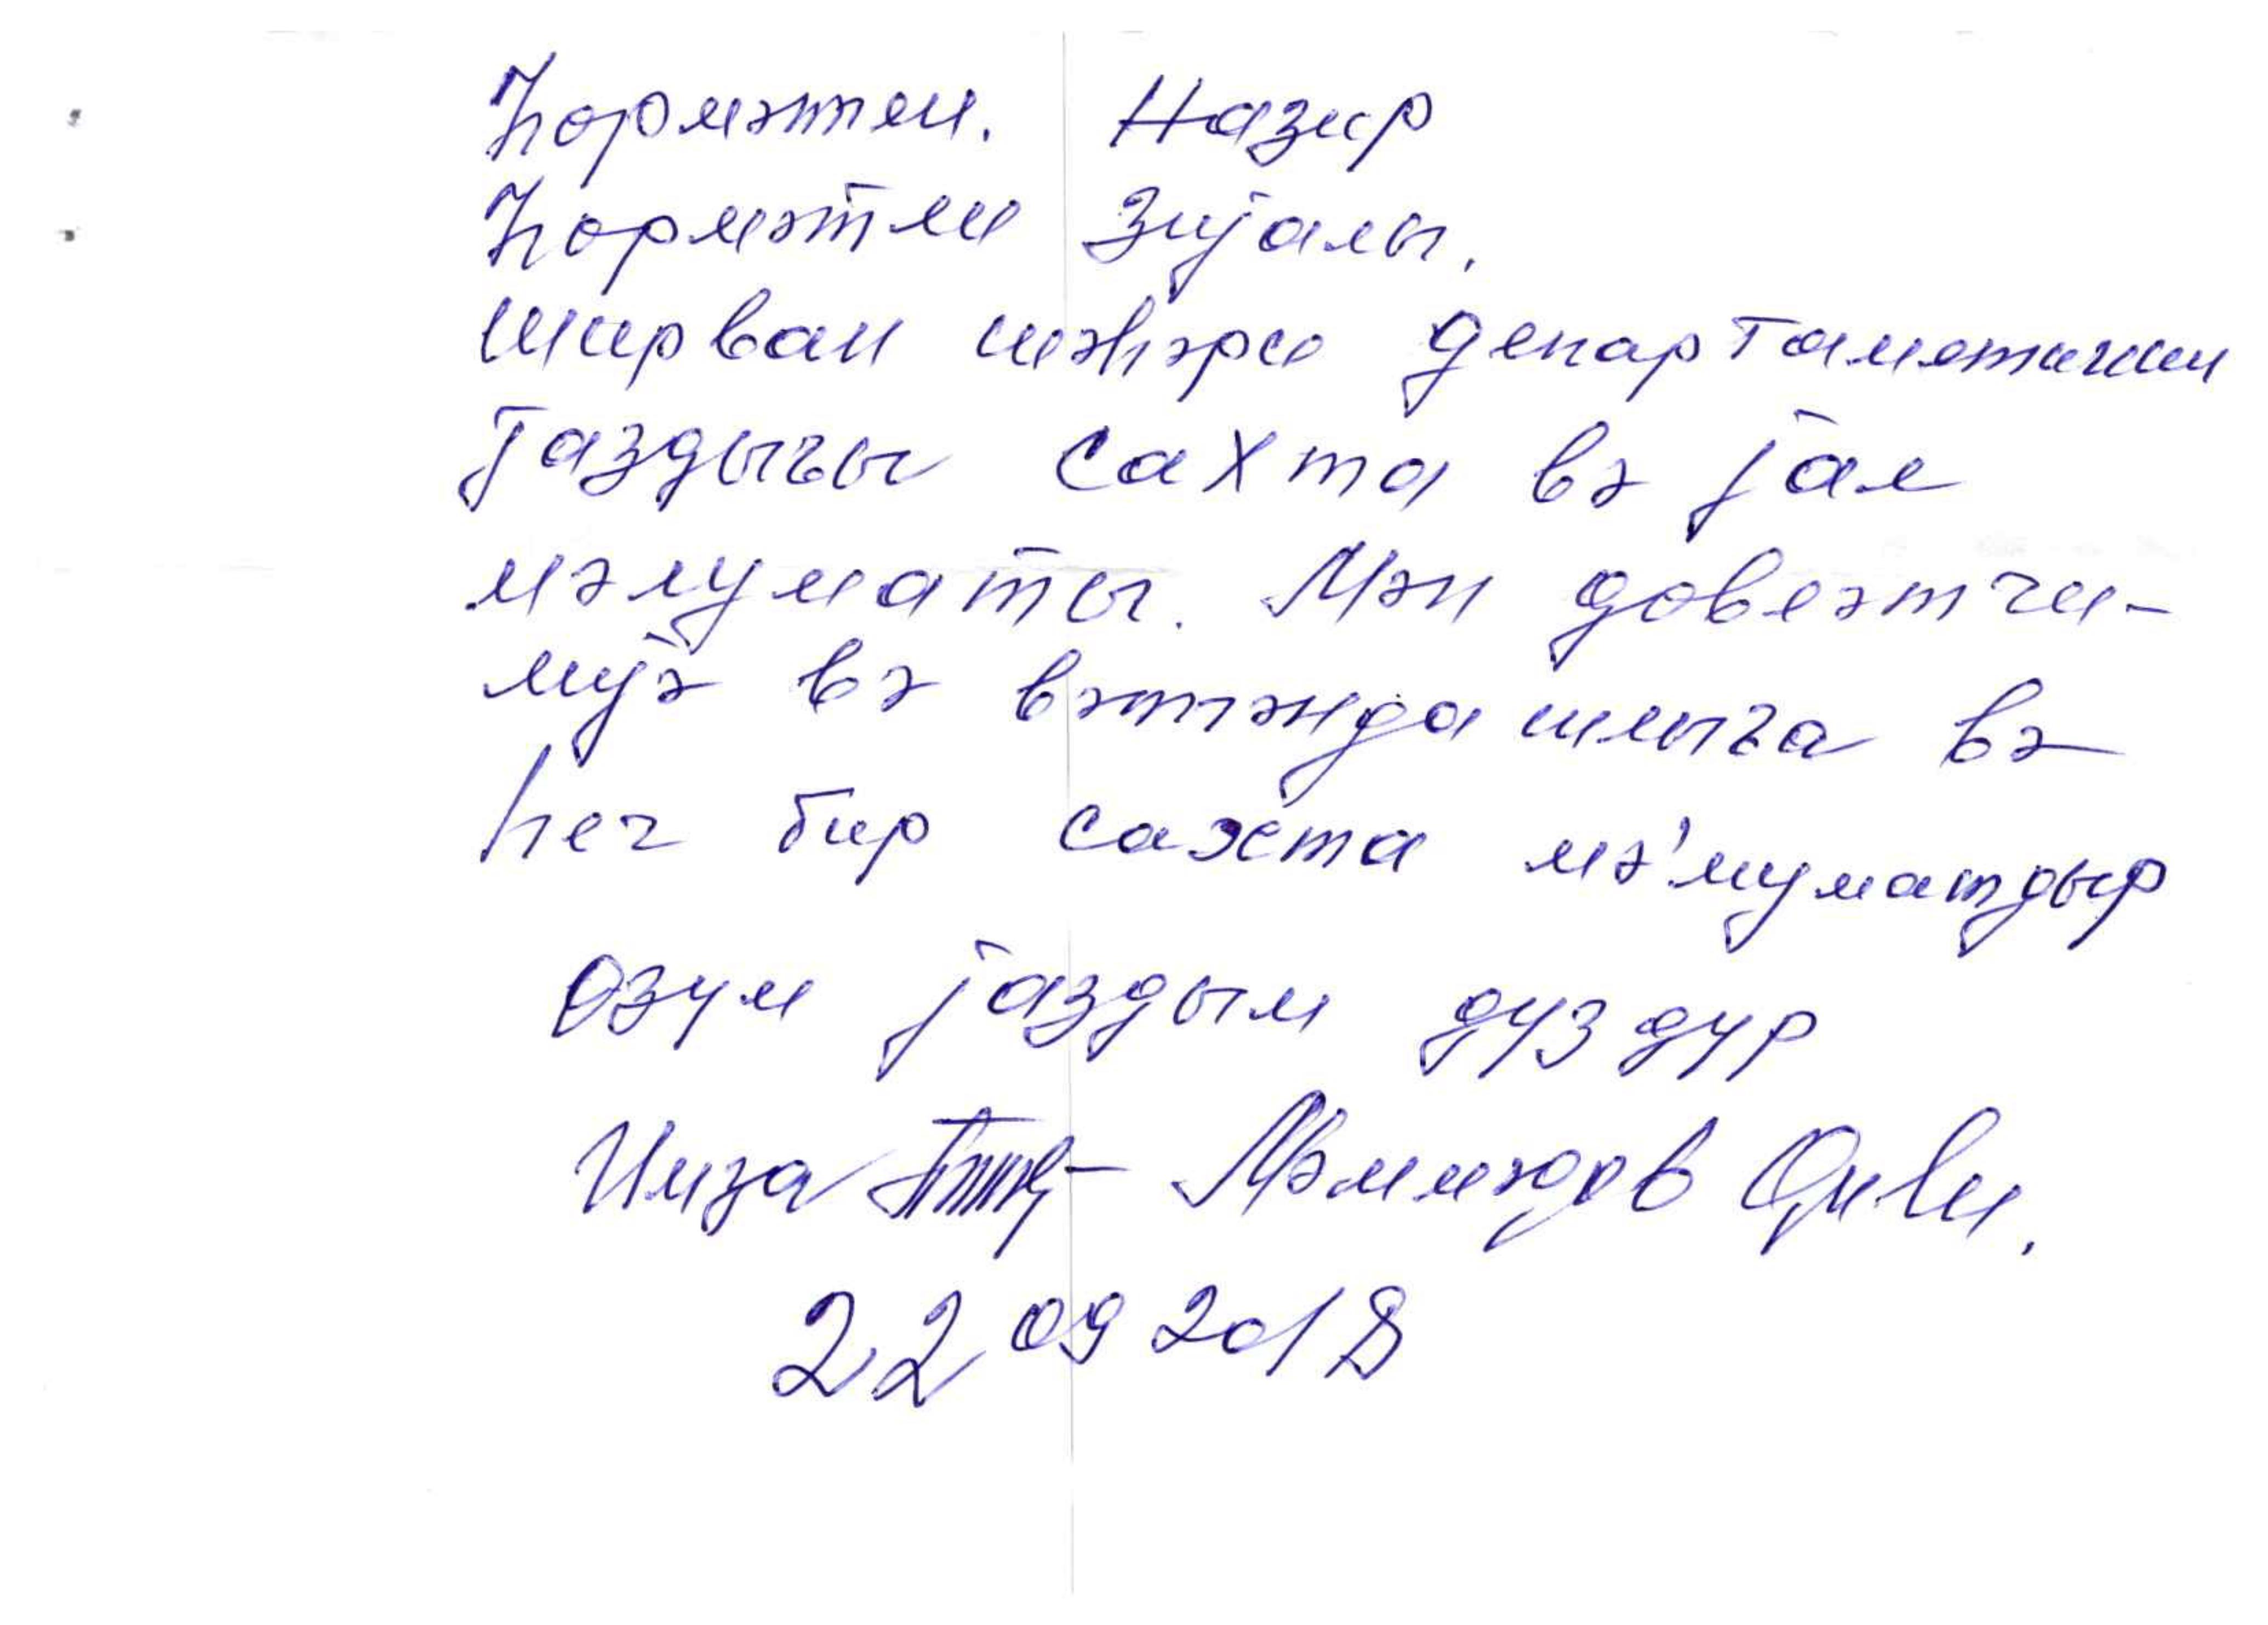 Һөрмәтли. Назир
Һөрмәтли Зијалы.
Ширван шәһәри департаметинин
Јаздығы сахта вә јал
мәлуматы. Мән довләтчи-
лијә вә вәтәндашлыға вә
һеч бир сахта мә'луматдыр
Өзүм јаздым дүздүр
Имза Мәммәдов
22 09 2018